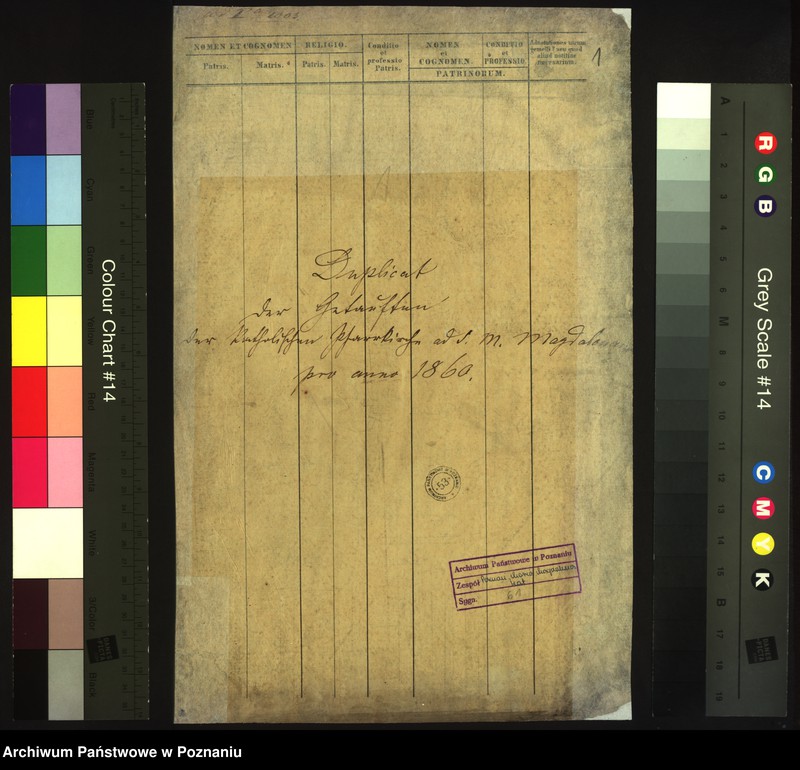 1
NOMEN ET COGNOMEN
RELIGIO.
Conditio et professio Patris.
NOMEN et COGNOMEN
CONDITIO et PROFESSIO
PATRINORUM.
Patris.
Matris.
Patris.
Matris.
Duplicat
der Getauften
der Katholischen Pfarrkirche ad S. M. Magdalenam
pro anno 1860.
53
Archiwum Państwowe w Poznaniu
Zespół Poznań
Sygn. 61
Colour Chart #14
Blue
Cyan
Green
Yellow
Red
Magenta
White
3/Color
Black
Grey Scale #14
R
G
B
C
M
Y
K
A
1
2
3
4
5
6
M
8
9
10
11
12
13
14
15
B
17
18
19
Archiwum Państwowe w Poznaniu